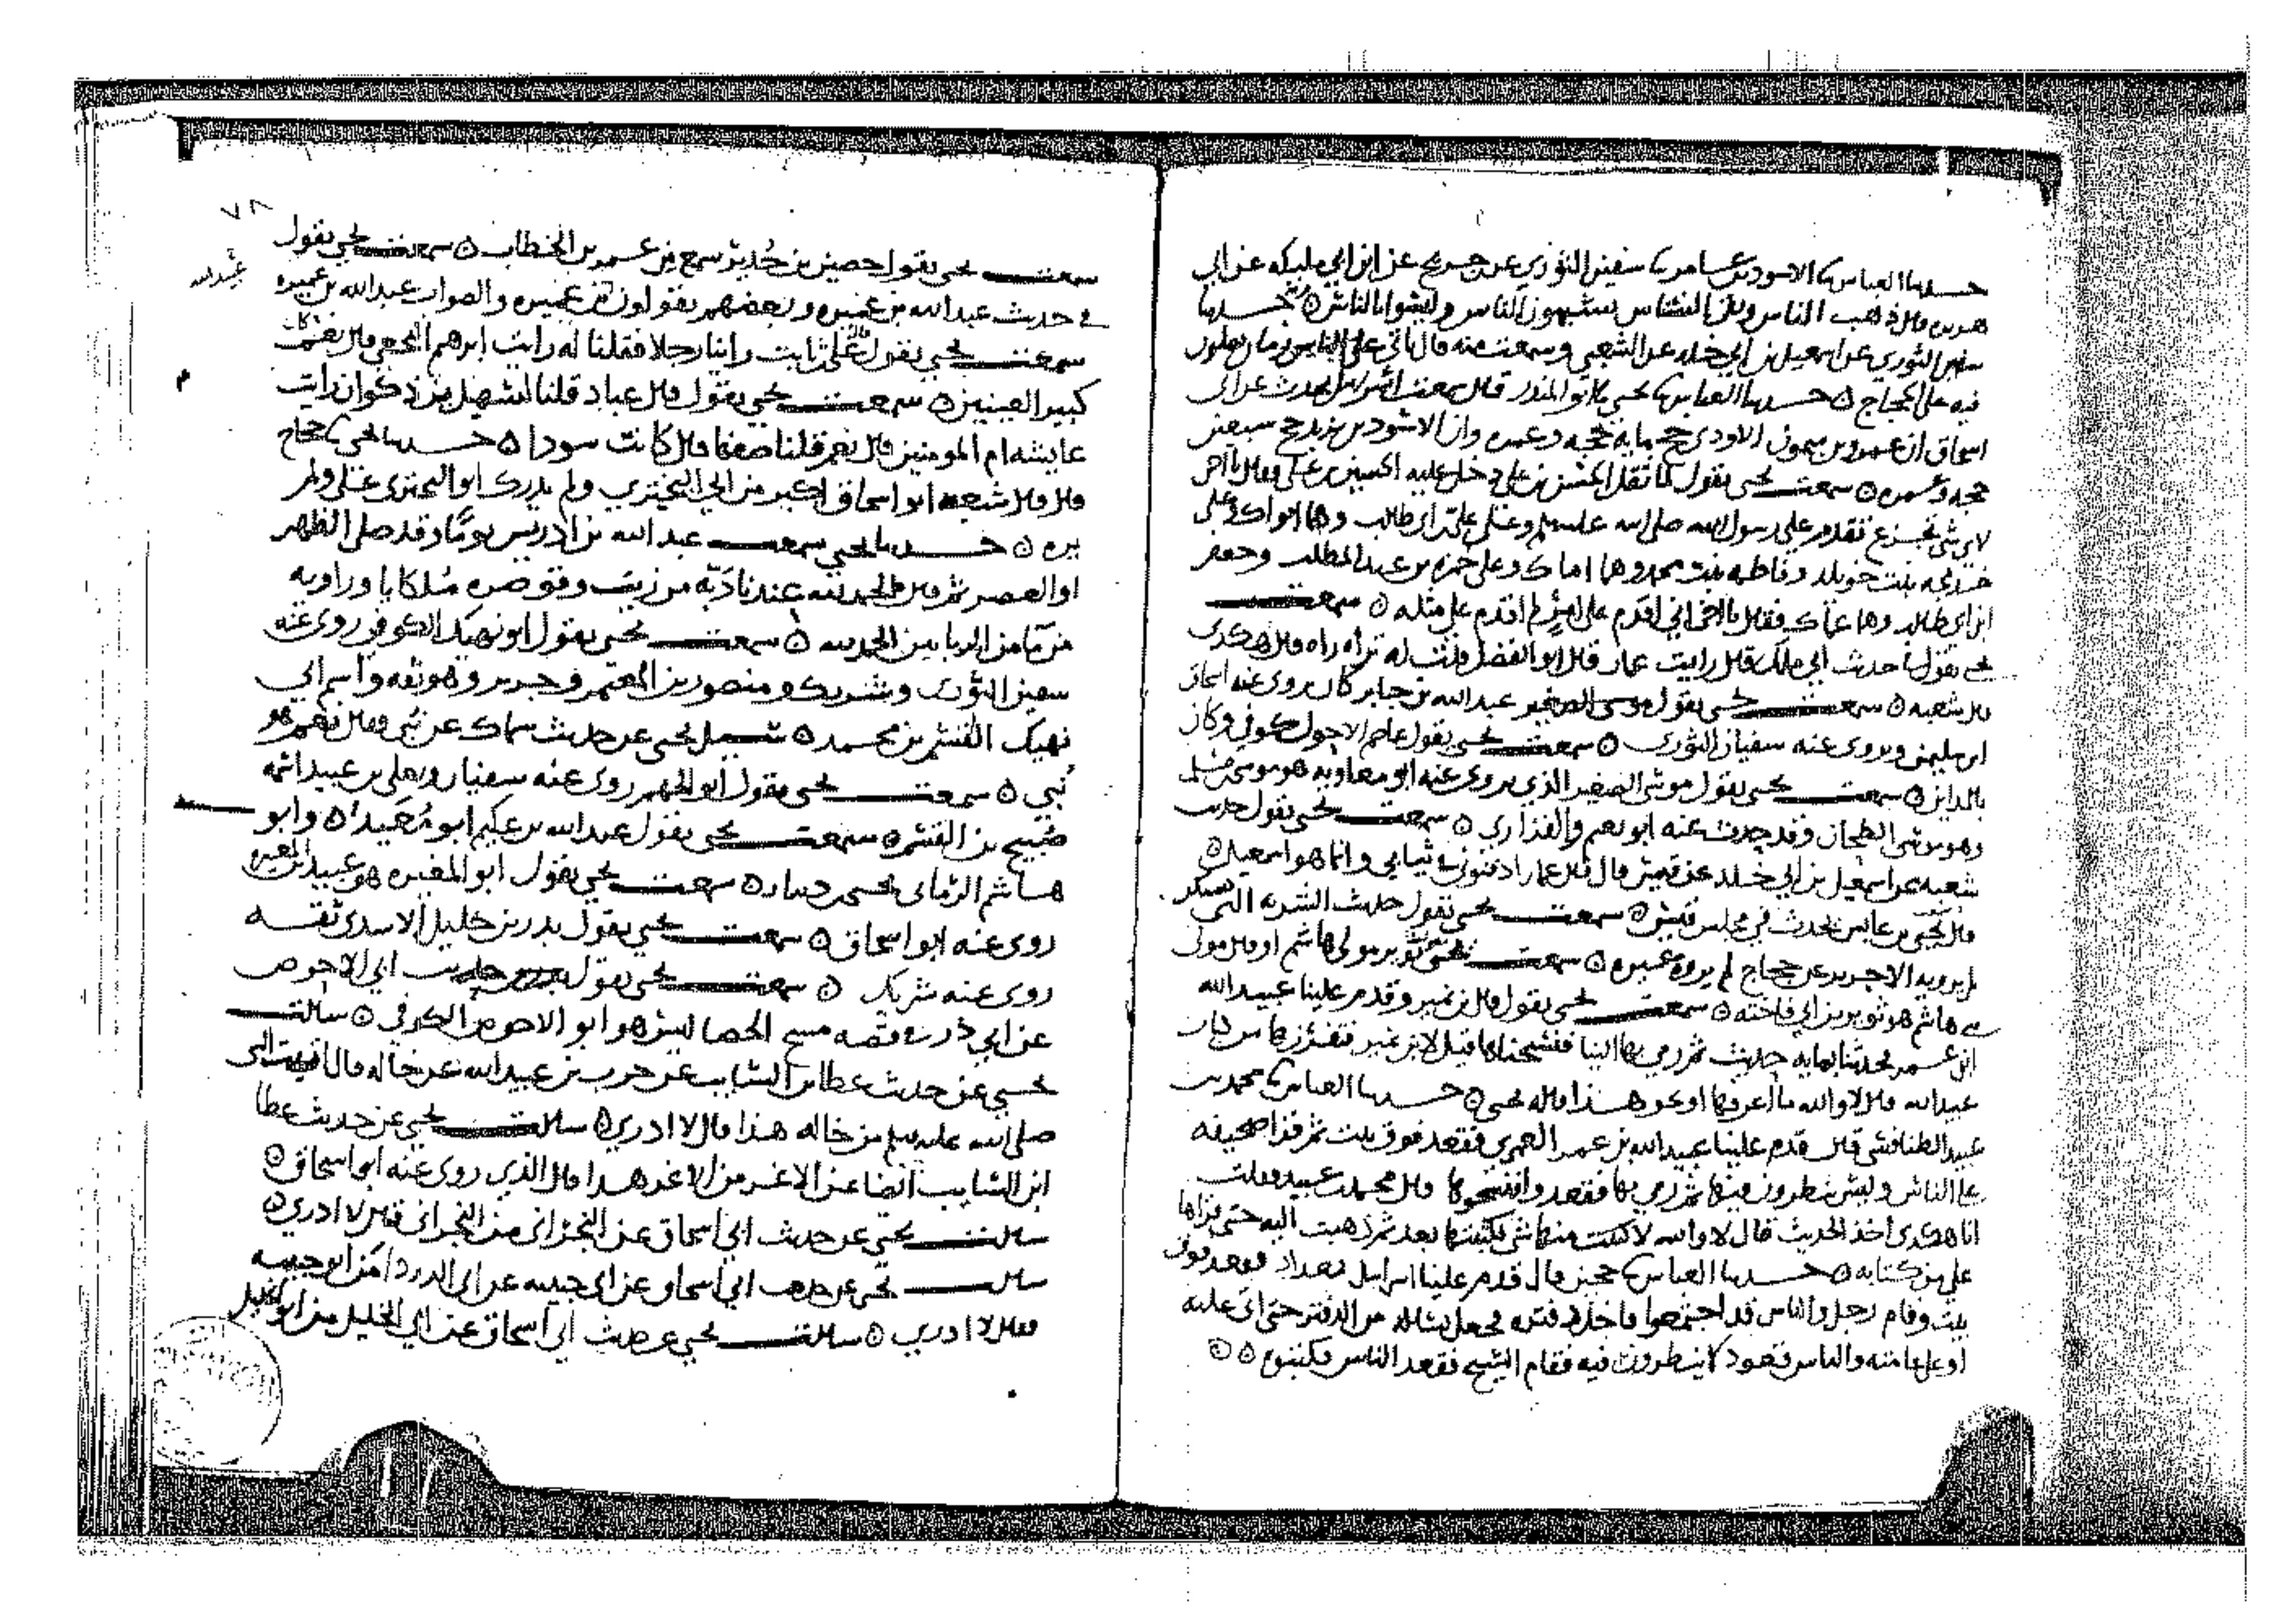 حدثنا العباس نا الاسود بن عامر نا سفين الثوري عن جريج عن ابن ابي مليكة عن ابي
هريرة قال ذهب الناس وبقي النسناس يشبهون الناس وليسوا بالناس ٥ حدثنا
سفين الثوري عن اسمعيل بن ابي خلد عن الشعبي وسمعت منه قال ياتي على الناس زمان يصلون
فيه على الحجاج ٥ حدثنا العباس نا يحيى نا ابو المنذر قال سمعت اسرايل يحدث عن ابي
اسحاق ان عمرو بن ميمون الاودي حج مايه حجه وعمره وان الاسود بن يزيد حج سبعين
حجه وعمره ٥ سمعت يحيى يقول لما ثقل الحسن بن علي دخل عليه الحسين بن علي وقال يا اخي
لاي شي تجزع تقدم على رسول الله صلى الله عليه وسلم وعلى علي بن ابي طالب وهما ابواك وعلى
خديجه بنت خويلد وفاطمه بنت محمد وهما اماك وعلى حمزه بن عبد المطلب وجعفر
ابن ابي طالب وهما عماك فقال يا اخي اني اقدم على امر لم اقدم على مثله ٥ سمعت
يحيى يقول نا حديث ابي ملك قال رايت عمار قال ابو الفضل قلت له تراه راه قال هكذى
قال شعبه ٥ سمعت يحيى يقول موسى الصغير عبد الله بن جابر كان يروى عنه اسحاق
ابن سليمن ويروى عنه سفيان الثورى ٥ سمعت يحيى يقول عاصم الاحول كوفي وكان
بالمداين ٥ سمعت يحيى يقول موسى الصغير الذي يروى عنه ابو معاويه هو موسى بن مسلم
وهو موسى الطحان وقد حدث عنه ابو نعيم والفزاري ٥ سمعت يحيى يقول حديث
شعبه عن اسمعيل بن ابي خلد عن قيس قال قال عمار ادفنوني في ثيابي وانما هو اسمعيل ٥
قال يحيى بن عابس يحدث في مجلس قيس ٥ سمعت يحيى يقول حديث الشربه التي تسكر
لم يرويه الا جرير عن حجاج لم يروه غيره ٥ سمعت يحيى ثوير مولى هاشم او قال مولى
بني هاشم هو ثوير بن ابي فاخته ٥ سمعت يحيى يقول قال بن نمير وقدم علينا عبيد الله
ابن عمر يحدثنا بمايه حديث ثم رمى بها الينا فنسخناها قيل لابن نمير فتقرؤنها من كتاب
عبيد الله قال لا والله ما اعرفها او نحو هذا قاله يحيى ٥ حدثنا العباس نا محمد بن
عبيد الطنافسي قال قدم علينا عبيد الله بن عمر العمري فقعد فوق بيت ثم قرا صحيفه
على الناس وليس ينظرون فيها ثم رمى بها فقعدوا فنسخوها قال محمد بن عبيد وقلت
انا هكذى اخذ الحديث قال لا والله لا كتبت منها شي فكتبتها بعد ثم ذهبت اليه حتى قراها
علي من كتابه ٥ حدثنا العباس نا حجين قال قدم علينا اسرايل بغداد فقعد فوق
بيت وقام رجل والناس قد اجتمعوا فاخذ دفتره فجعل يساله من الدفتر حتى اتى عليه
او على عامته والناس قعود لا ينظرون فيه فقام الشيخ فقعد الناس فكتبوه ٥ ٥
٧٨
سمعت يحيى يقول حصين بن حدير سمع من عمر بن الخطاب ٥ سمعت يحيى يقول
في حديث عبد الله بن عميره وبعضهم يقولون بن عميره والصواب عبد الله بن عميره
عبد الله
سمعت يحيى يقول قال علي بن ثابت راينا رجلا فقلنا له رايت ابرهيم النخعي قال نعم كان
كبير العينين ٥ سمعت يحيى يقول قال عباد قلنا لسهيل بن ذكوان رايت
عايشه ام المومنين قال نعم قلنا صفها قال كانت سودا ٥ حدثنا يحيى نا حجاج
قال قال شعبه ابو اسحاق اكبر من ابي البختري ولم يدرك ابو البختري علي ولم
يره ٥ حدثنا يحيى سمعت عبد الله بن ادريس يوما وقد صلى الظهر
او العصر ثم قال الحمد لله عندنا دبه من زيت وقوصره ملكايا وراويه
من ما من الربابين الحمد لله ٥ سمعت يحيى يقول ابو نهيك الكوفي روى عنه
سفين الثوري وشريك ومنصور بن المعتمر وجرير وهو ثقه واسم ابي
نهيك القسم بن محمد ٥ سيل يحيى عن حديث سماك عن ثبي وقال نعم هو
ثبي ٥ سمعت يحيى يقول ابو الجهم روى عنه سفيان ويعلى بن عبيد اسمه
صبيح بن القسم ٥ سمعت يحيى يقول عبد الله بن عكيم ابو معبد ٥ وابو
هاشم الرماني يحيى بن دينار ٥ سمعت يحيى يقول ابو المغيره هو عبيد بن المغيره
روى عنه ابو اسحاق ٥ سمعت يحيى يقول بدر بن خليل الاسدي ثقه
روى عنه شريك ٥ سمعت يحيى يقول حديث ابي الاحوص
عن ابي ذر في قصه مسح الحصا ليس هو ابو الاحوص الكوفي ٥ سالت
يحيى عن حديث عطا بن السايب عن حرب بن عبيد الله عن خاله قال اتيت النبي
صلى الله عليه وسلم من خاله هذا قال لا ادري ٥ سالت يحيى عن حديث عطا
ابن السايب ايضا عن الاغر من الاغر هذا قال الذي روى عنه ابو اسحاق ٥
سالت يحيى عن حديث ابي اسحاق عن النجراني من النجراني قال لا ادري ٥
سالت يحيى عن حديث ابي اسحاق عن ابي حبيبه عن ابي الدردا من ابو حبيبه
فقال لا ادري ٥ سالت يحيى عن حديث ابي اسحاق عن ابي الخليل من ابو الخليل